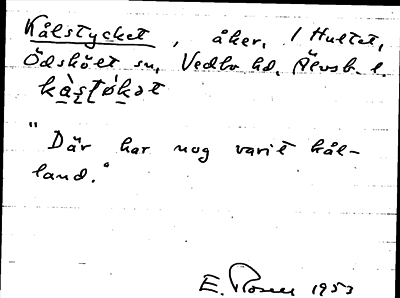 Kålstycket, åker, 1 Hultet,
Ödskölt sn, Vedbo hd, Älvsb. l.
"Där har nog varit kål-
land."
E. Rosell 1953